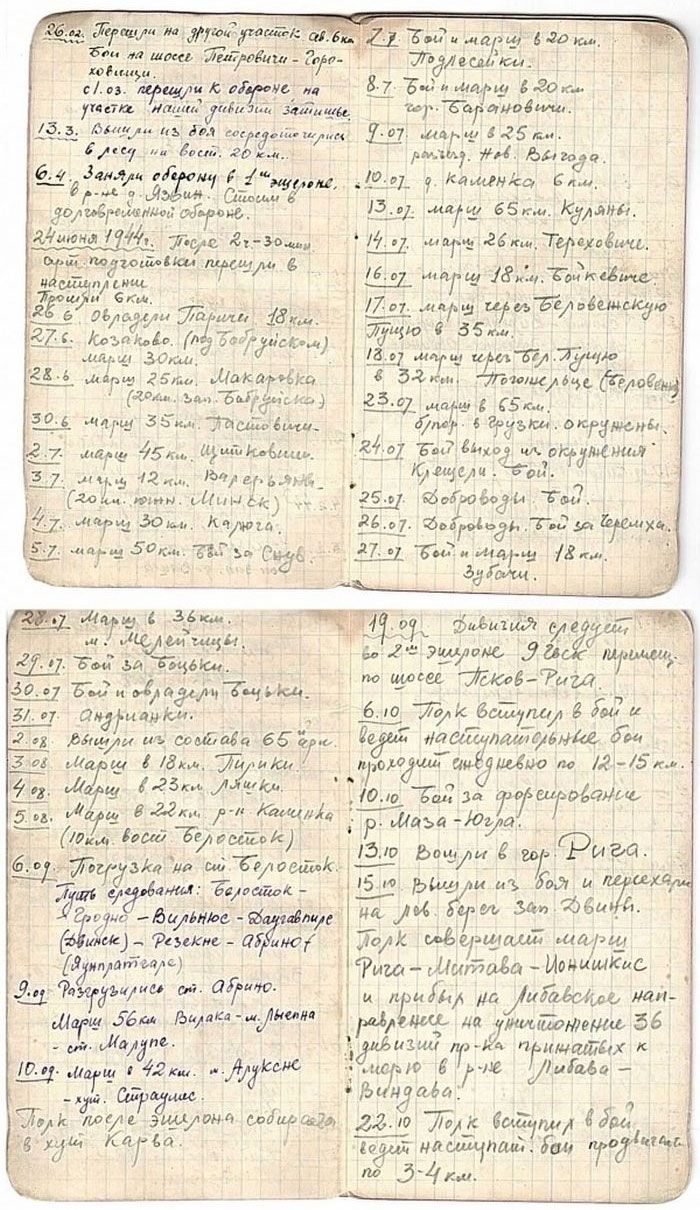 26.02. Перешли на другой участок ов. 6 км
Бои на шоссе Петровичи - Горо-
ховищи.
с 1.03. перешли к обороне на
участке нашей дивизии затишье.
13.3. Вышли из боя сосредоточились
в лесу на вост. 20 км.
6.4. Заняли оборону в 1ом эшелоне.
в р-не д. Язвин. Стоим в
долговременной обороне.
24 июня 1944 г. После 2ч-30 мин.
арт. подготовки перешли в
наступление
Прошли 6 км.
26 6 Овладели Паричи 18 км.
27.6. Козаково. (под Бобруйском)
марш 30 км.
28.6 марш 25 км. Макаровка
(20 км. зап. Бобруйска)
30.6 марш 35 км. Пастовичи-
2.7. марш 45 км. Щитковичи.
3.7. марш 12 км. Валерьяны-
(20 км. южн. Минск)
4.7. марш 30 км. Калюга.
5.7. марш 50 км. Бой за Снув.
7.7 Бой и марш в 20 км.
Подлесейки.
8.7. Бой и марш в 20 км
гор. Барановичи.
9.07 марш в 25 км.
Нов. Выгода.
10.07 д. Каменка 6 км.
13.07. марш 65 км. Куляны.
14.07. марш 26 км. Тереховиче.
16.07 марш 18 км. Бойкевиче.
17.07 марш через Беловежскую
Пущю в 35 км.
18.07 марш через Бел. Пущю
в 32 км. Погожельце (Беловеж)
23.07 марш в 65 км.
б/пор. в Грузки. окружены.
24.07 Бой выход из окружения
Клещели. Бой.
25.07 Доброводы. Бой.
26.07. Доброводы. Бой за Черемха.
27.07 Бой и марш 18 км.
Зубачи.
28.07 Марш в 36 км.
м. Мелейчицы.
29.07. Бой за Боцьки.
30.07 Бой и овладели Боцьки.
31.07. Андрианки.
2.08. Вышли из состава 65 й арм.
3.08. Марш в 18 км. Пилики.
4.08. Марш в 23 км Ляшки.
5.08. Марш в 22 км р-н Каменка
(10 км. вост Белосток)
6.09. Погрузка на ст Белосток.
Путь следования: Белосток -
- Гродно - Вильнюс - Даугавпилс
(Двинск) - Резекне - Абрино
(Яунплатгале)
9.09 Разгрузились ст. Абрино.
Марш 56 км Вилака - м. Лыепна
- ст. Малупе.
10.09. Марш в 42 км. м. Алуксне
- хут. Страупис.
Полк после эшелона собирается
в хут Карва.
19.09 Дивизия следует
во 2ом эшелоне 9 гвск перемещ.
по шоссе Псков-Рига.
6.10 Полк вступил в бой и
ведет наступательные бои
проходит ежедневно по 12-15 км.
10.10 Бой за форсирование
р. Маза-Югла.
13.10 Вошли в гор. Рига.
15.10 Вышли из боя и переехали
на лев. берег зап. Двины.
Полк совершает марш
Рига-Митава-Ионишкис
и прибыл на Либавское нап-
равление на уничтожение 36
дивизий пр-ка прижатых к
морю в р-не Либава-
Виндава.
22.10 Полк вступил в бой
ведет наступат. бои продвигаясь
по 3-4 км.